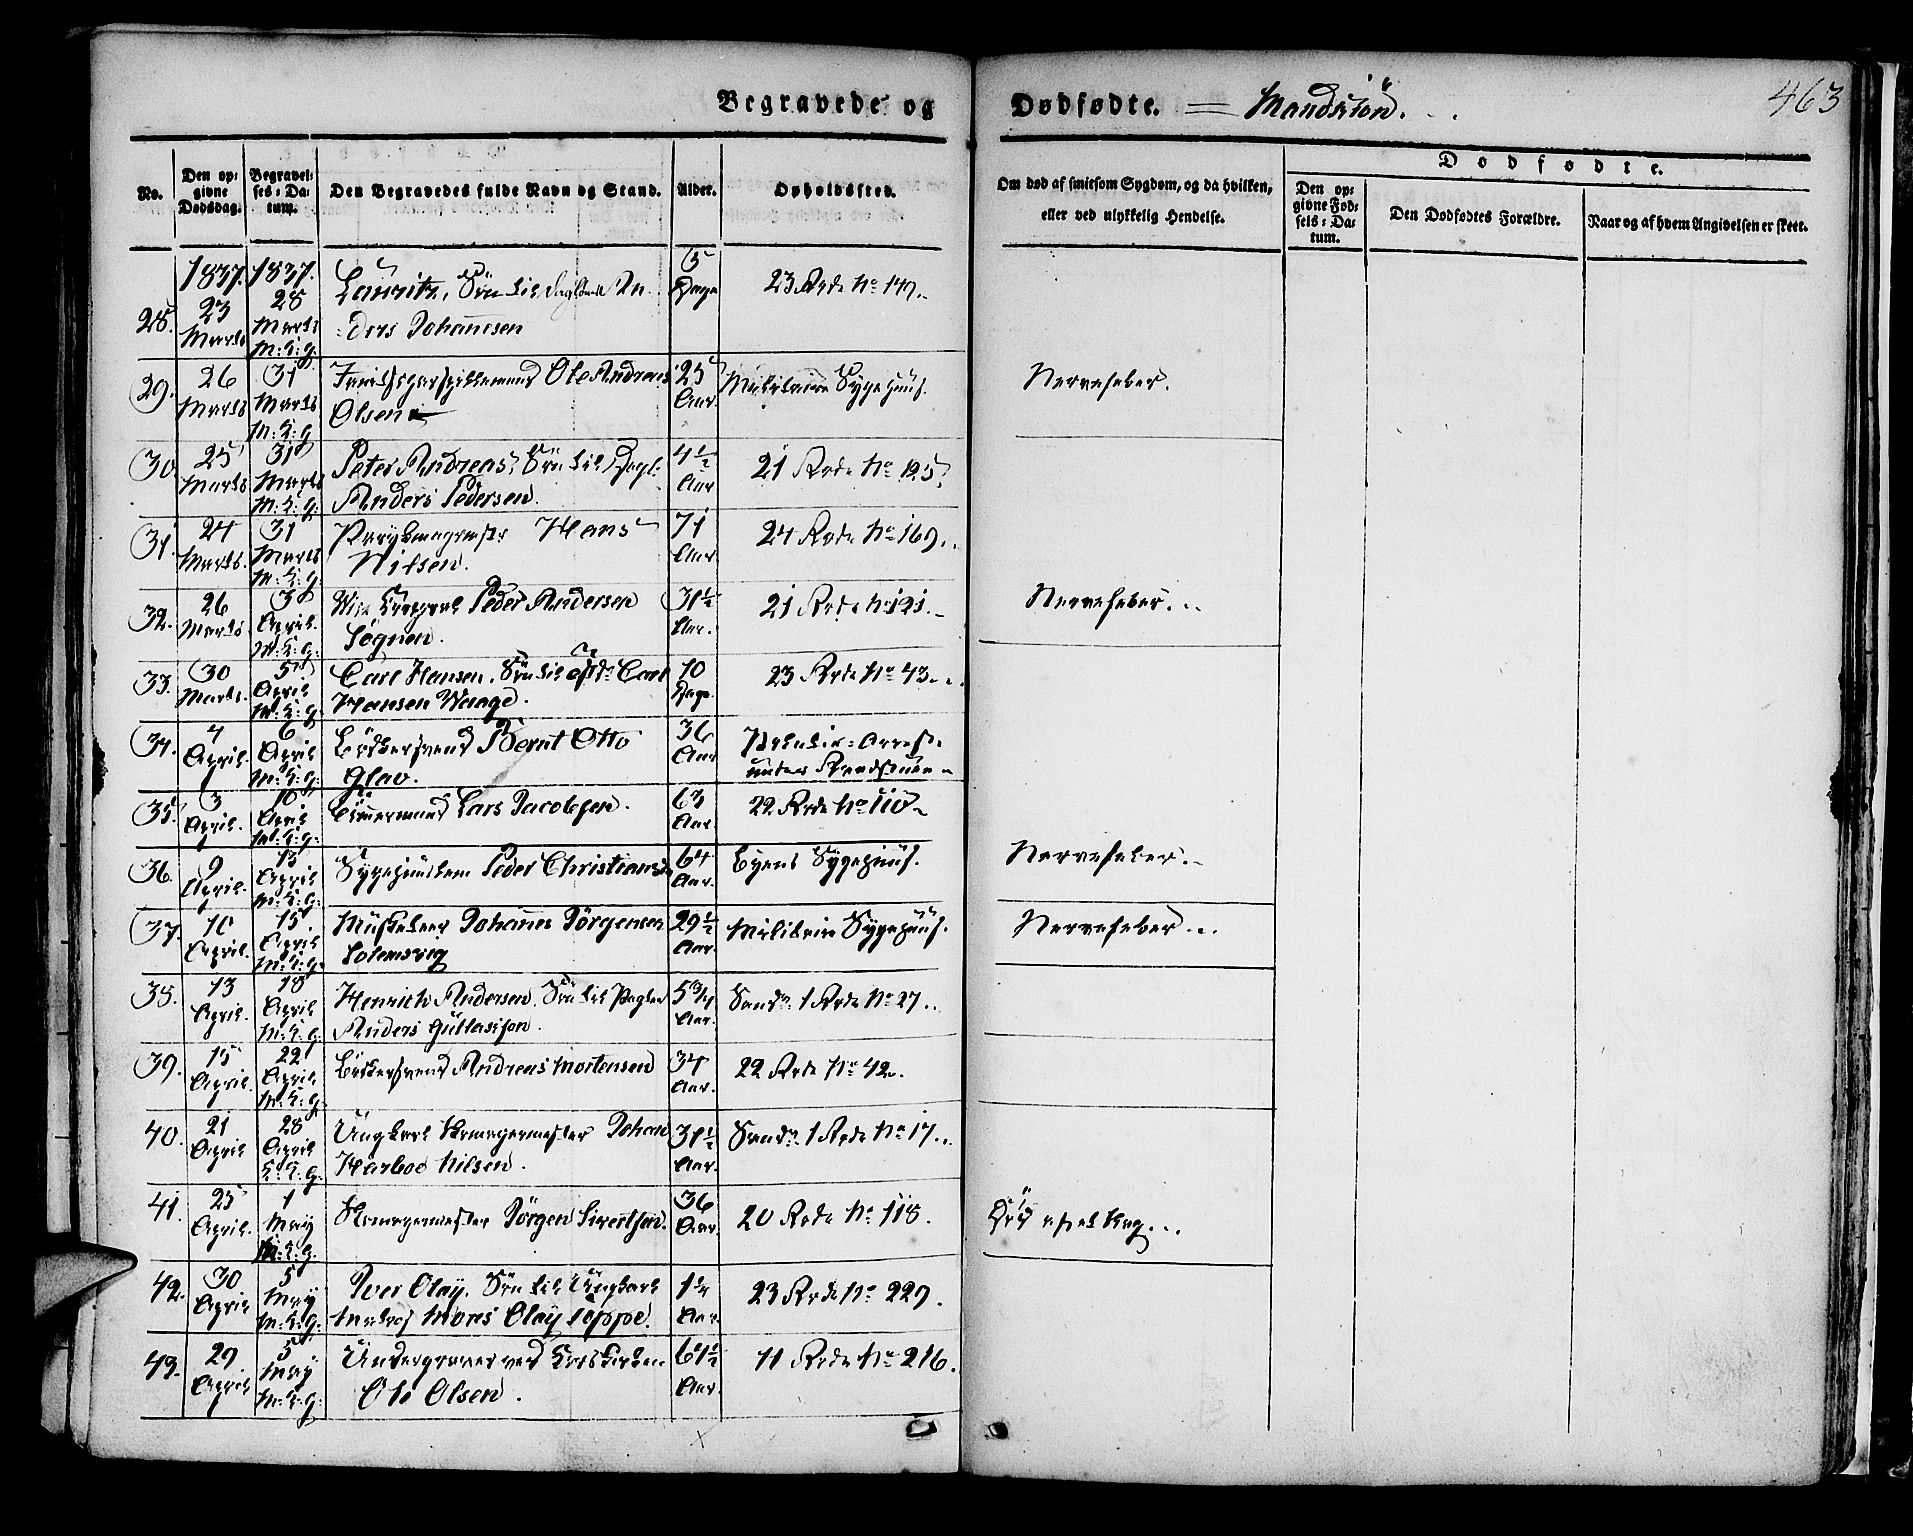 Begravede og
Dødfødte. = Mandkiön.
463
No.
Den op-
givne
Dødsdag.
Begravel-
ses-Da-
tum.
Den Begravedes fulde Navn og Stand.
Alder.
Opholdssted.
Om død af smitsom Sygdom, og da hvilken,
eller ved ulykkelig Hendelse.
Dødfødte.
Den op-
givne Fød-
sels-Da-
tum.
Den Dødfødtes Forældre.
Naar og af hvem Angivelsen er skeet.
1837. 1837.
28. 23 Marts 28 Marts M: K: g. Lauritz, Søn til An-
ders Johannesen 5 Dage 23 Rode No
29. 26 Marts 31 Marts M: K: g. Ole Andreas
Olsen 25 Aar Militaire Sygehuus. Nervefeber.
30. 25 Marts 31 Marts M: K: g. Peter Andreas, Søn til Dagl.
Anders Pedersen. 4½ Aar 21 Rode No 125
31. 24 Marts 31 Marts M: K: g. Hans
Nilsen. 71 Aar 24 Rode No 169.
32. 26 Marts 3 April M: K: g. Peder Andersen
Søgnen. 31½ Aar. 21 Rode No 121. Nervefeber.
33. 30 Marts 5 April M: K: g. Carl Hansen. Søn til Carl
Hansen Waage. 10 Dage 23 Rode No 43.
34. 4 April. 6 April M: K: g. Bødkersvend Bernt Otto
Glav. 36 Aar
35. 3 April. 10 April M: K: g. Tømmermand Lars Jacobsen. 63 Aar. 22 Rode No 110
36. 9 April. 13 April M: K: g. Sygehuuslem Peder Christiansen 64 Aar. Byens Sygehuus. Nervefeber.
37. 10 April. 15 April M: K: g. Musketeer Johannes Jörgensen
Solemsvig 29½ Aar Militaire Sygehuus. Nervefeber.
38. 13 April. 18 April M: K: g. Henrich Andersen. Søn til
Anders Gullaksen. 5¾ Aar. Sandv. 1 Rode No 27.
39. 15 April. 22 April M: K: g. Bødkersvend Andreas Mortensen 34 Aar. 22 Rode No 42.
40. 21 April 28 April K: K: g. Ungkarl Skomagermester Johan
Harboe Nilsen. 31½ Aar. Sandv. 1 Rode No 17.
41. 25 April. 1 May M: K: g. Skomagermester Jörgen Sivertsen. 36 Aar. 20 Rode No 118.
42. 30 April 5 May M: K: g. Iver Olay. Søn til Ungkarl
Matros Mons Olay Toppe. Aar. 23 Rode No 229.
43. 29 April 5 May M: K: g. Undergraver ved Korskirken
Ole Olsen. 64½ Aar. 11 Rode No 216.